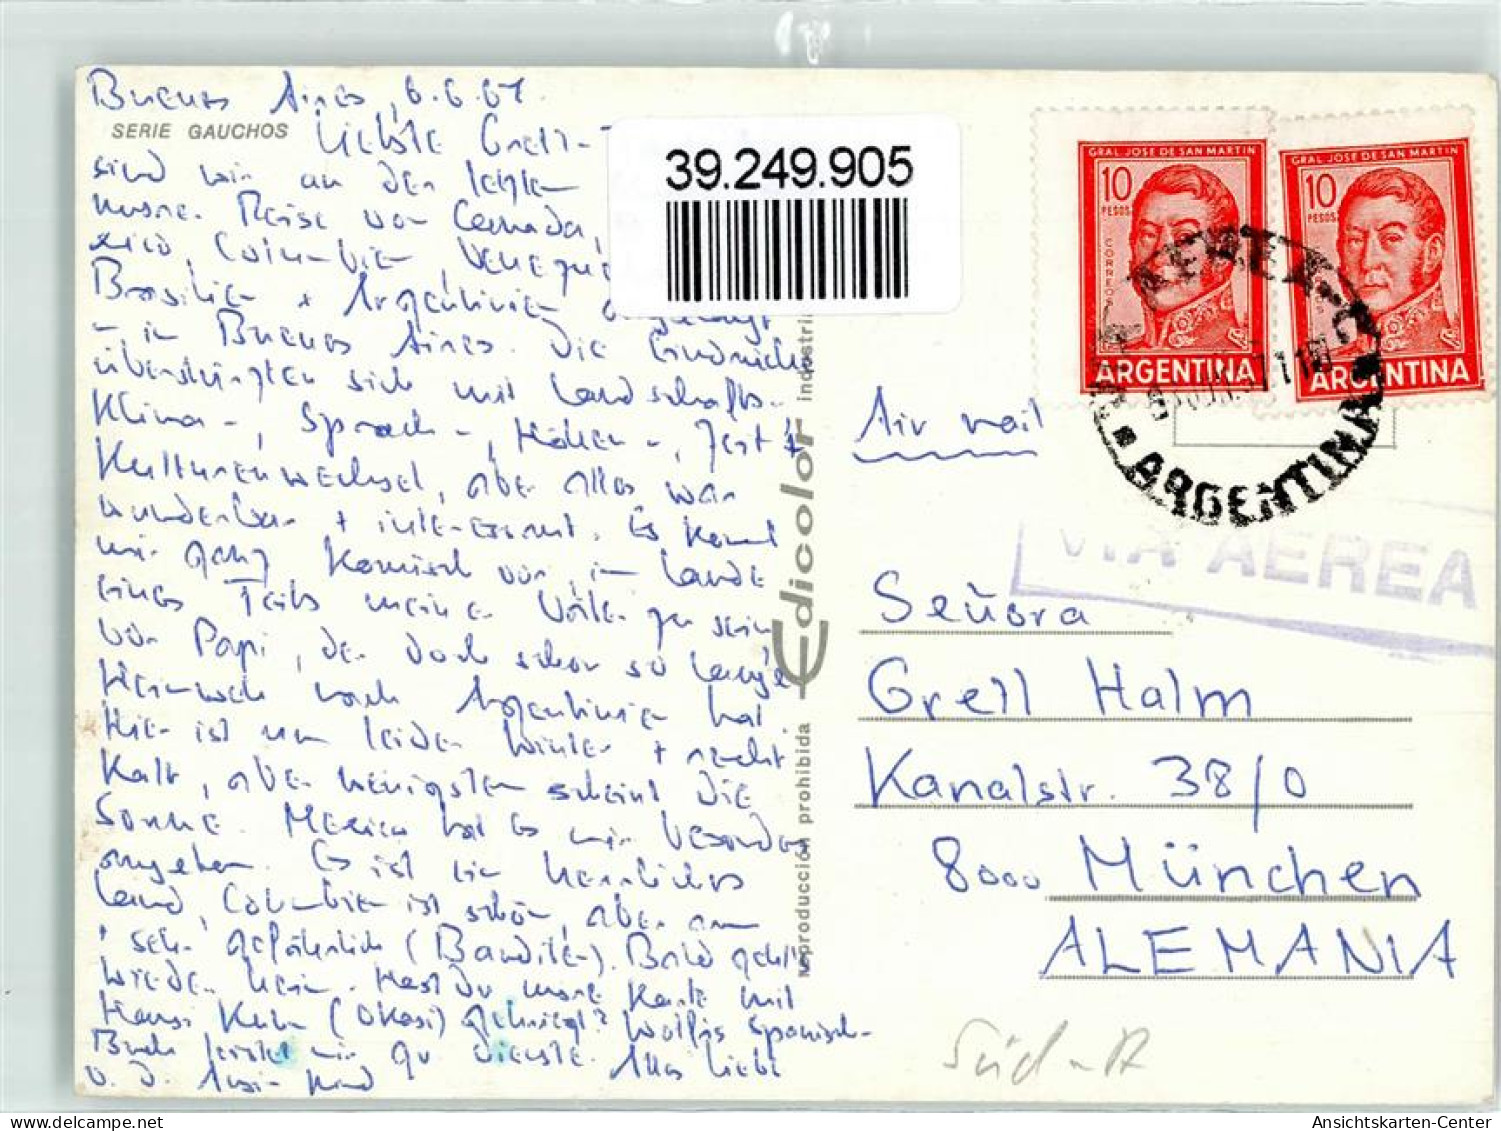 Buenos Aires, 6.6.67.
SERIE GAUCHOS
Liebste Grell-
sind wir an der letzten
unsre. Reise von Canada,
xico, Columbien, Venezue
Brasilien + Argentinien angelangt
- in Buenos Aires. Die Eindrücke
überstürzten sich mit Landschafts-
Klima-, Sprach-, Höhen-, Zeit +
Kulturenwechsel, aber alles war
wunderbar + interessant. Es kommt
mir ganz komisch vor, im Lande
eines Teils meiner Völker zu sein,
von Papi, der doch schon so lange
Heimweh nach Argentinien hat.
Hier ist nun leider Winter + recht
kalt, aber wenigsten scheint die
Sonne. Mexico hat es mir besonders
angetan. Es ist ein herrliches
Land, Columbien ist schön, aber arm
, sehr gefährlich (Banditen). Bald geht's
wieder heim. Hast Du unsre Karte mit
Hansi Kuhn (Okasi) gekriegt? Wolfis Spanisch-
Buch leistet mir gr. Dienste. Alles Liebe
39.249.905
Edicolor industria
reproducción prohibida
GRAL JOSE DE SAN MARTIN
10
PESOS
CORREOS
ARGENTINA
GRAL JOSE DE SAN MARTIN
10
PESOS
ARGENTINA
ARGENTINA
Air mail
VIA AEREA
Señora
Grell Halm
Kanalstr. 38/0
8000 München
ALEMANIA
Süd-A
Ansichtskarten-Center